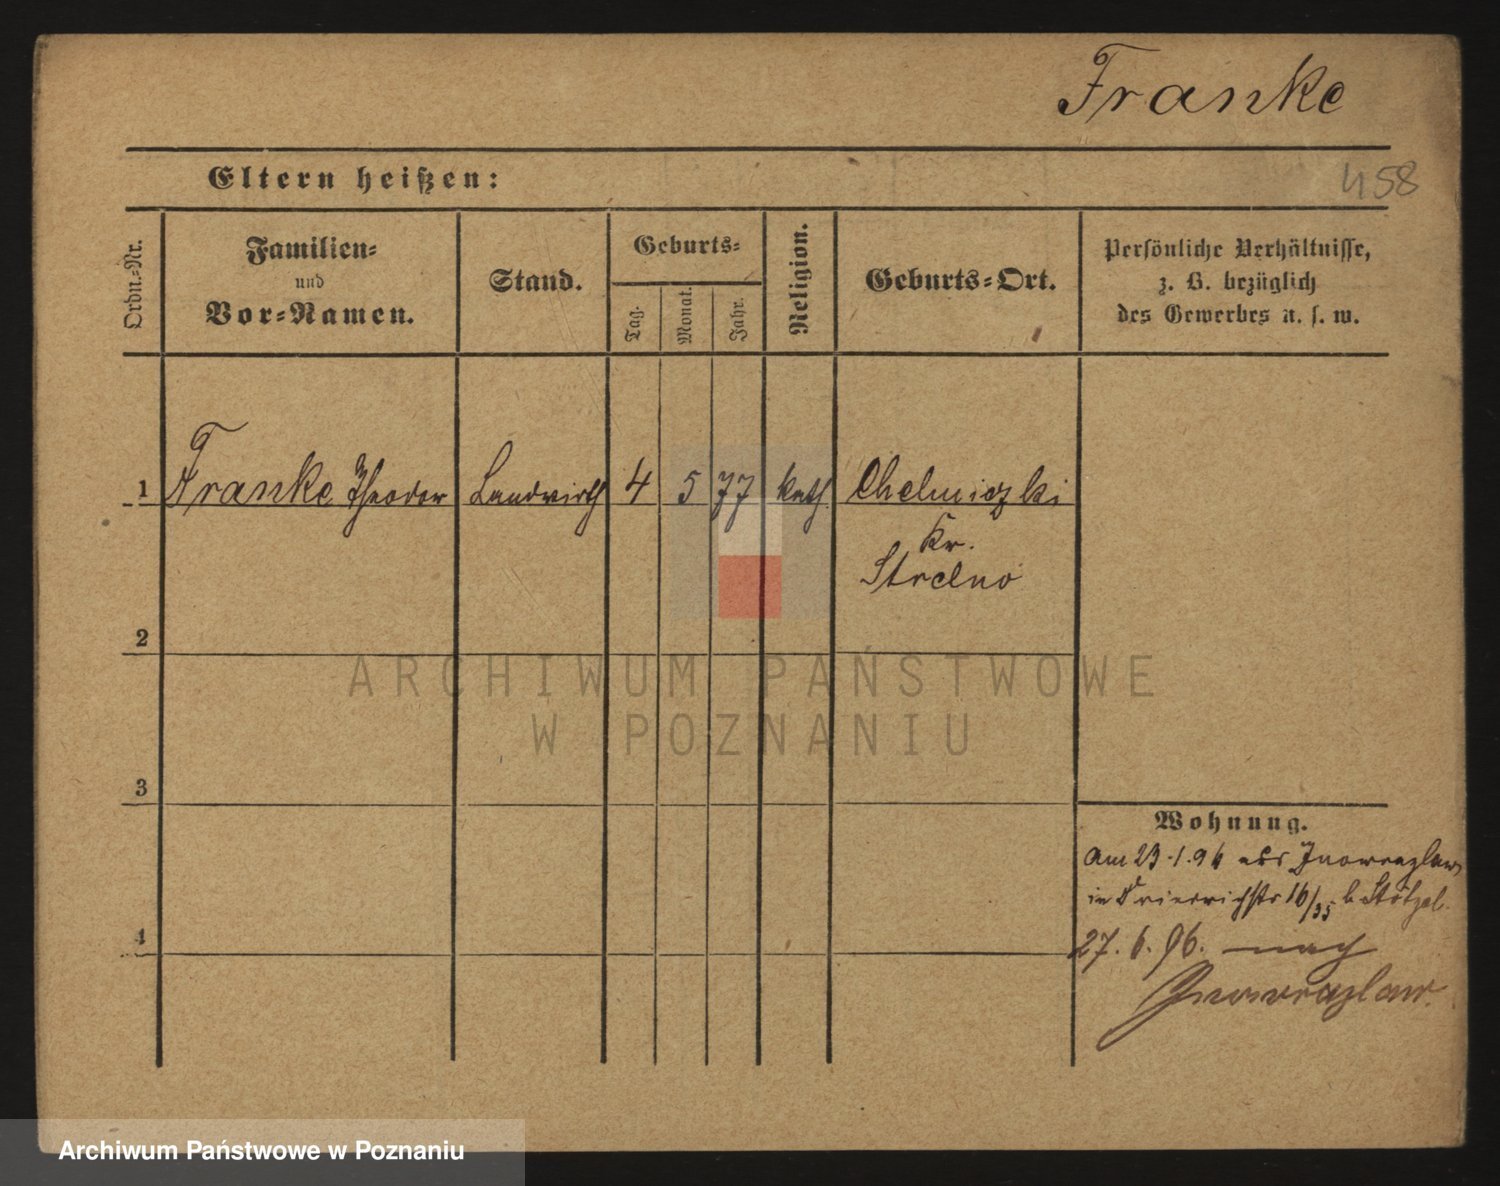 Franke
458
Eltern heißen:
Ordn.-Nr.
Familien-
und
Vor-Namen.
Stand.
Geburts-
Tag.
Monat.
Jahr.
Religion.
Geburts-Ort.
Persönliche Verhältnisse,
z. B. bezüglich
des Gewerbes u. s. w.
1 Franke Theodor Landwirth 4 5 77 kath. Chelmiczki
Kr.
Strelno
2
ARCHIWUM PAŃSTWOWE
W POZNANIU
3
Wohnung.
Am 23.1.96 aus Inowrazlaw
in 16/35 b.
4
27.6.96. nach
Inowrazlaw.
Archiwum Państwowe w Poznaniu